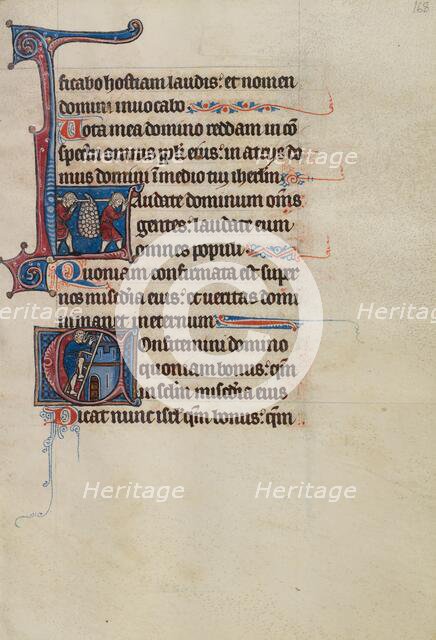 168
ficabo hostiam laudis: et nomen
domini invocabo
Vota mea domino reddam in cō
spectu omnius ppłi eius: in atriis do
mus domini ī medio tui iherlm̄
Laudate dominum om̄s
gentes: laudate eum
omnes populi
Quoniam confirmata est super
nos mis̄dia eius: et veritas domi
ni manet in eternum
Confitemini domino
quoniam bonus: qm̄
in sclm̄ mis̄dia eius
Dicat nunc isrl̄ qm̄ bonus: qm̄
Heritage Heritage Heritage
Heritage Heritage Heritage
Heritage Heritage